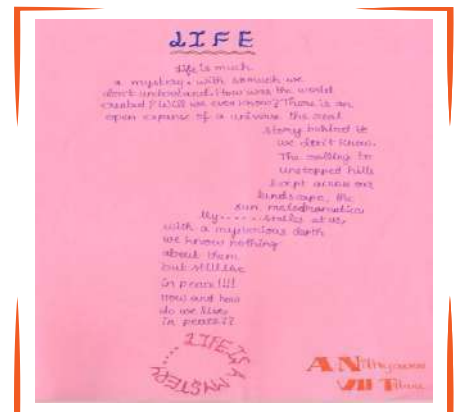 LIFE
Life is much
a mystery, with somuch we
don't understand. How was the world
created? Will we ever know? There is an
open expanse of a universe the real
story behind it
we don't know.
The rolling to
unstopped hills
swept across our
landscape, the
sun melodramatica
lly...... stalks at us,
with a mysterious depth
we know nothing
about them
but still
in peace!!!!
now and how
do we live
in peace??
LIFE IS A MYSTERY....
VIII